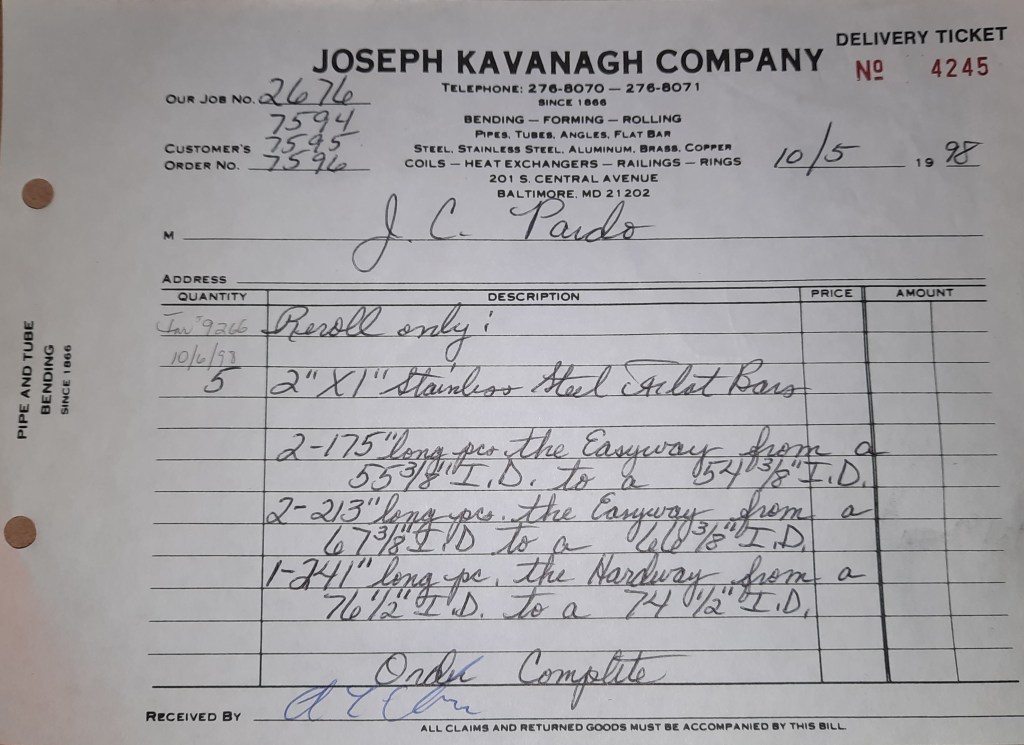 DELIVERY TICKET
JOSEPH KAVANAGH COMPANY
Nº 4245
TELEPHONE: 276-8070 — 276-8071
SINCE 1866
OUR JOB NO. 2676
BENDING — FORMING — ROLLING
7594
PIPES, TUBES, ANGLES, FLAT BAR
CUSTOMER'S 7595
STEEL, STAINLESS STEEL, ALUMINUM, BRASS, COPPER
ORDER NO. 7596
COILS — HEAT EXCHANGERS — RAILINGS — RINGS
10/5 1998
201 S. CENTRAL AVENUE
BALTIMORE, MD 21202
M J. C. Pardo
ADDRESS
QUANTITY DESCRIPTION PRICE AMOUNT
Inv # 9266 Reroll only:
10/6/98
5 2" X 1" Stainless Steel Flat Bars
2-175" long pcs. the Easyway from a
55 3/8" I.D. to a 54 3/8" I.D.
2-213" long pcs. the Easyway from a
67 3/8" I.D to a 66 3/8" I.D.
1-241" long pc. the Hardway from a
76 1/2" I.D. to a 74 1/2" I.D.
Order Complete
RECEIVED BY
ALL CLAIMS AND RETURNED GOODS MUST BE ACCOMPANIED BY THIS BILL
PIPE AND TUBE
BENDING
SINCE 1866